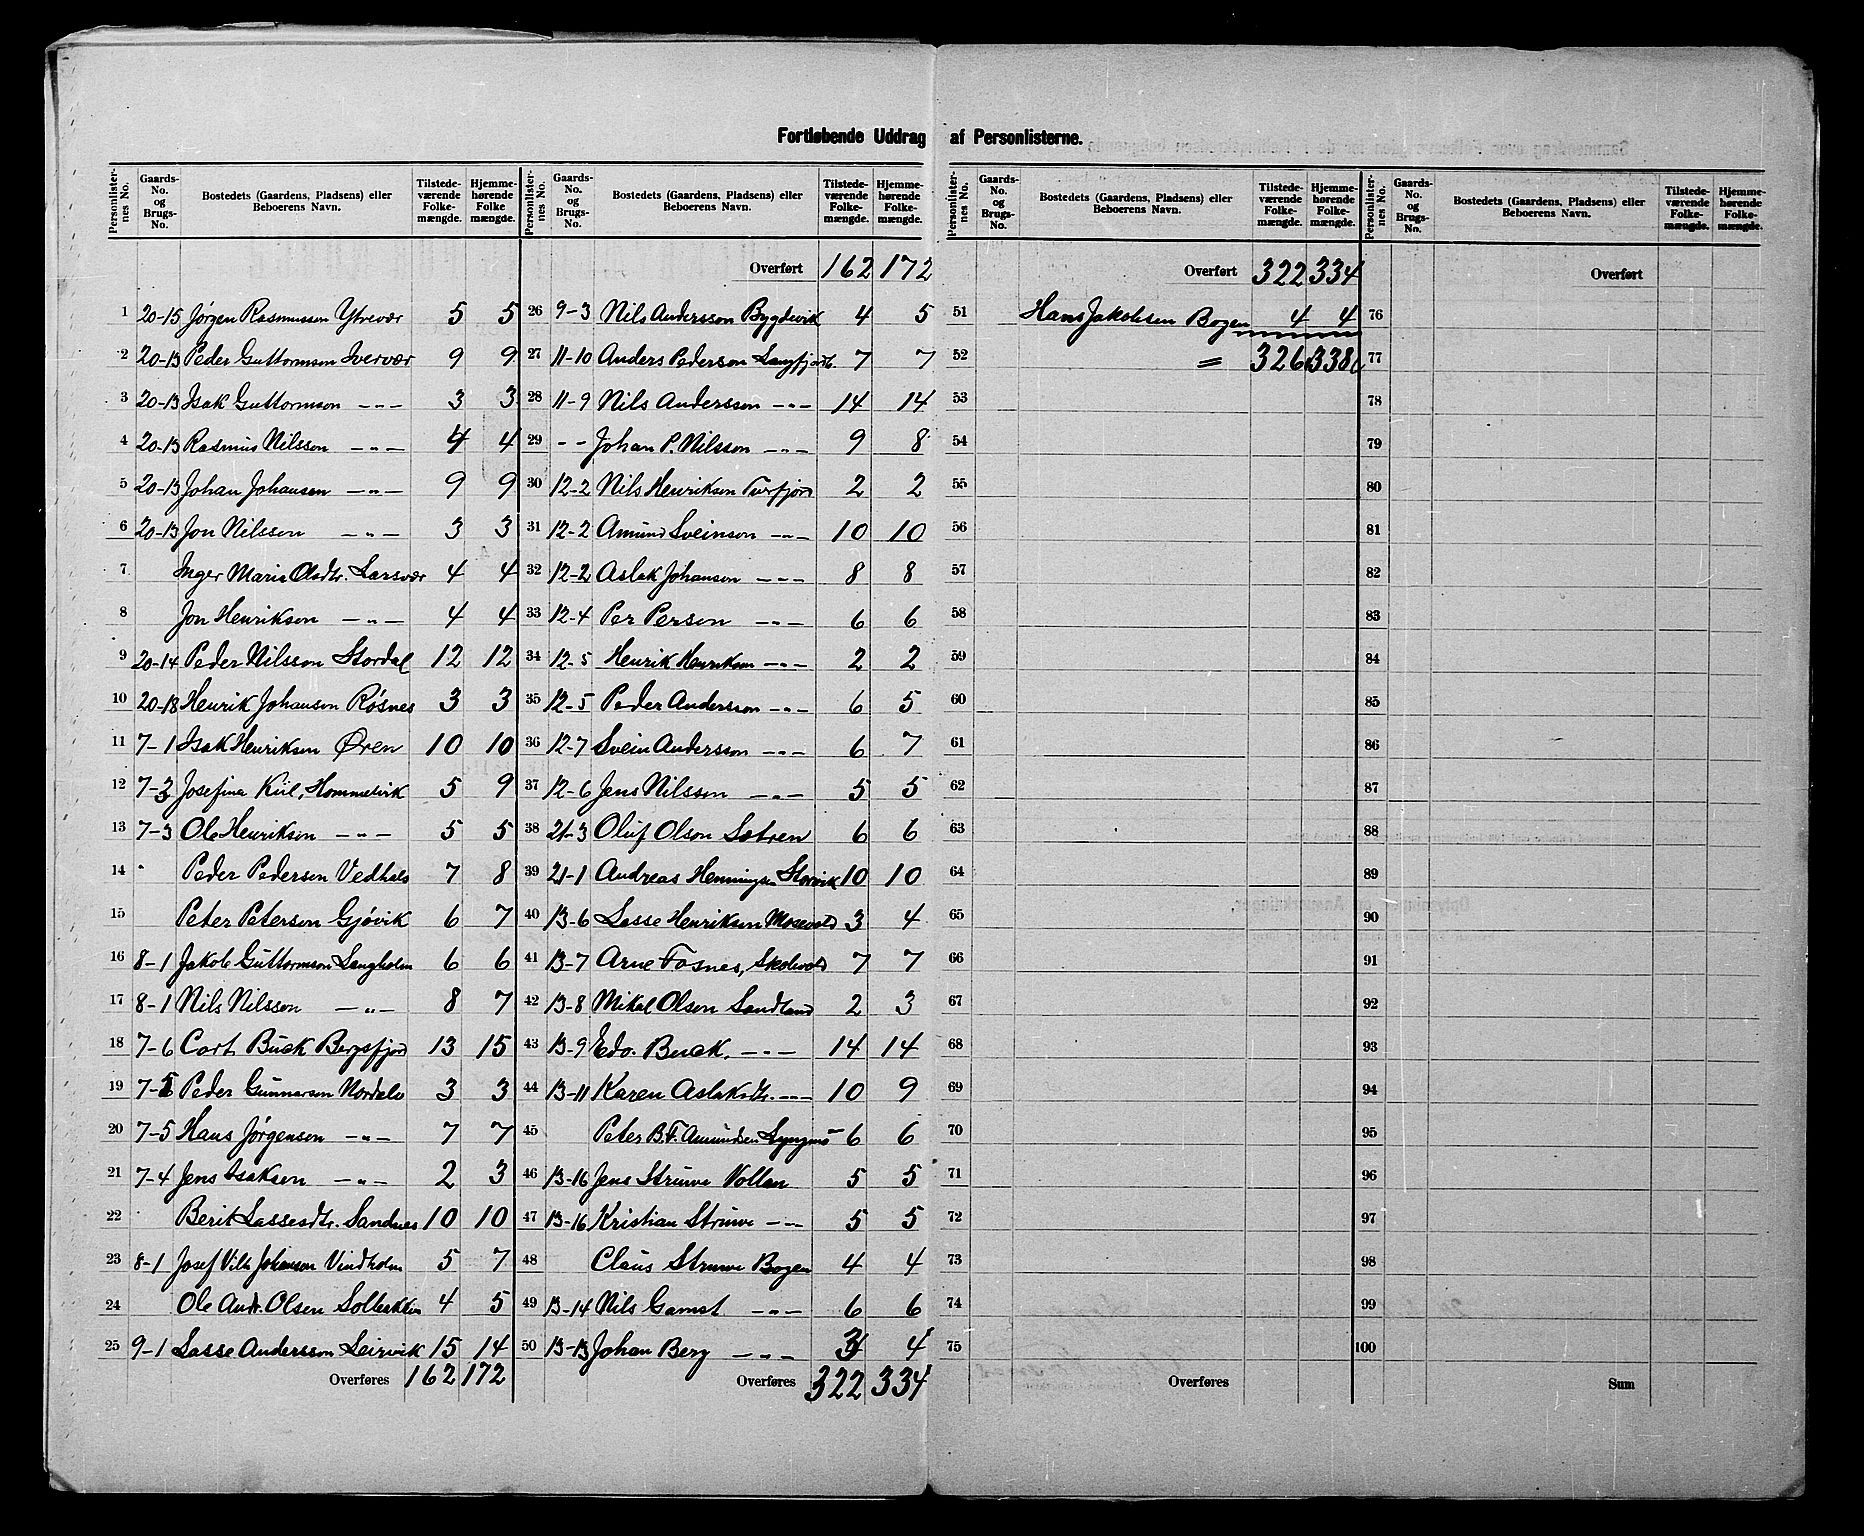 Fortløbende Uddrag af Personlisterne.
Personlister-nes No. | Gaards-No. og Brugs-No. | Bostedets (Gaardens, Pladsens) eller Beboerens Navn. | Tilstede-værende Folke-mængde. | Hjemme-hørende Folke-mængde.
1 20-15 Jørgen Rasmussen Ytrevær 5 5
2 20-13 Peder Guttormsen Ivervær 9 9
3 20-13 Isak Guttormson -„- 3 3
4 20-13 Rasmus Nilsson -„- 4 4
5 20-13 Johan Johansen -„- 9 9
6 20-13 Jon Nilsson -„- 3 3
7 Inger Maria Olsdtr. Larsvær 4 4
8 Jon Henriksen -„- 4 4
9 20-14 Peder Nilsson Stordal 12 12
10 20-18 Henrik Johanson Røsnes 3 3
11 7-1 Isak Henriksen Øren 10 10
12 7-3 Josefina Kiil, Hommelvik 5 9
13 7-3 Ole Henriksen -„- 5 5
14 " Peder Pedersen Vedhals 7 8
15 Peter Peterson Gjøvik 6 7
16 8-1 Jakob Guttormson Langholm 6 6
17 8-1 Nils Nilsson -„- 8 7
18 7-6 Cort Buck Bergsfjord 13 15
19 7-5 Peder Gunnarson Nordals 3 3
20 7-5 Hans Jørgenson -„- 7 7
21 7-4 Jens Isaksen -„- 2 3
22 Berit Lassesdtr. Sandnes 10 10
23 8-1 Josef Vilh Johanson Vindholm 5 7
24 Ole Andr. Olsen 4 5
25 9-1 Lasse Andersson Leirvik 15 14
Overføres 162 172
Personlister-nes No. | Gaards-No. og Brugs-No. | Bostedets (Gaardens, Pladsens) eller Beboerens Navn. | Tilstede-værende Folke-mængde. | Hjemme-hørende Folke-mængde.
Overført 162 172
26 9-3 Nils Andersson Bygdevik 4 5
27 11-10 Anders Pederson Langfjordb. 7 7
28 11-9 Nils Andersson -„- 14 14
29 - - Johan P. Nilsson -„- 9 8
30 12-2 Nils Henriksen 2 2
31 12-2 Amund Sveinson -„- 10 10
32 12-2 Aslak Johanson -„- 8 8
33 12-4 Per Person -„- 6 6
34 12-5 Henrik Henriksen -„- 2 2
35 12-5 Peder Andersson -„- 6 5
36 12-7 Svein Andersson -„- 6 7
37 12-6 Jens Nilsson -„- 5 5
38 21-3 Oluf Olson Sætren 6 6
39 21-1 Andreas Henningsen Storvik 10 10
40 13-6 Lasse Henriksen Mosevold 3 4
41 13-7 Arne Fosnes, Skolevold 7 7
42 13-8 Mikal Olsen Sandland 2 3
43 13-9 Edv. Buck. -„- 14 14
44 13-11 Karen Aslaksdtr. -„- 10 9
45 Peter B.F. Amundsen Lyngmo 6 6
46 13-16 Jens Struwe Vollan 5 5
47 13-16 Kristian Struwe -„- 5 5
48 Claus Struwe Bogen 4 4
49 13-14 Nils Gamst -„- 6 6
50 13-13 Johan Berg -„- 4
Overføres 322 334
Personlister-nes No. | Gaards-No. og Brugs-No. | Bostedets (Gaardens, Pladsens) eller Beboerens Navn. | Tilstede-værende Folke-mængde. | Hjemme-hørende Folke-mængde.
Overført 322 334
51 Hans Jakobsen Bogen 4 4
52 = 326 338
53
54
55
56
57
58
59
60
61
62
63
64
65
66
67
68
69
70
71
72
73
74
75
Overføres
Personlister-nes No. | Gaards-No. og Brugs-No. | Bostedets (Gaardens, Pladsens) eller Beboerens Navn. | Tilstede-værende Folke-mængde. | Hjemme-hørende Folke-mængde.
Overført
76
77
78
79
80
81
82
83
84
85
86
87
88
89
90
91
92
93
94
95
96
97
98
99
100
Sum